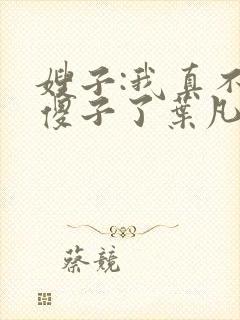 嫂子:我真不
傻子了葉凡
蔡競